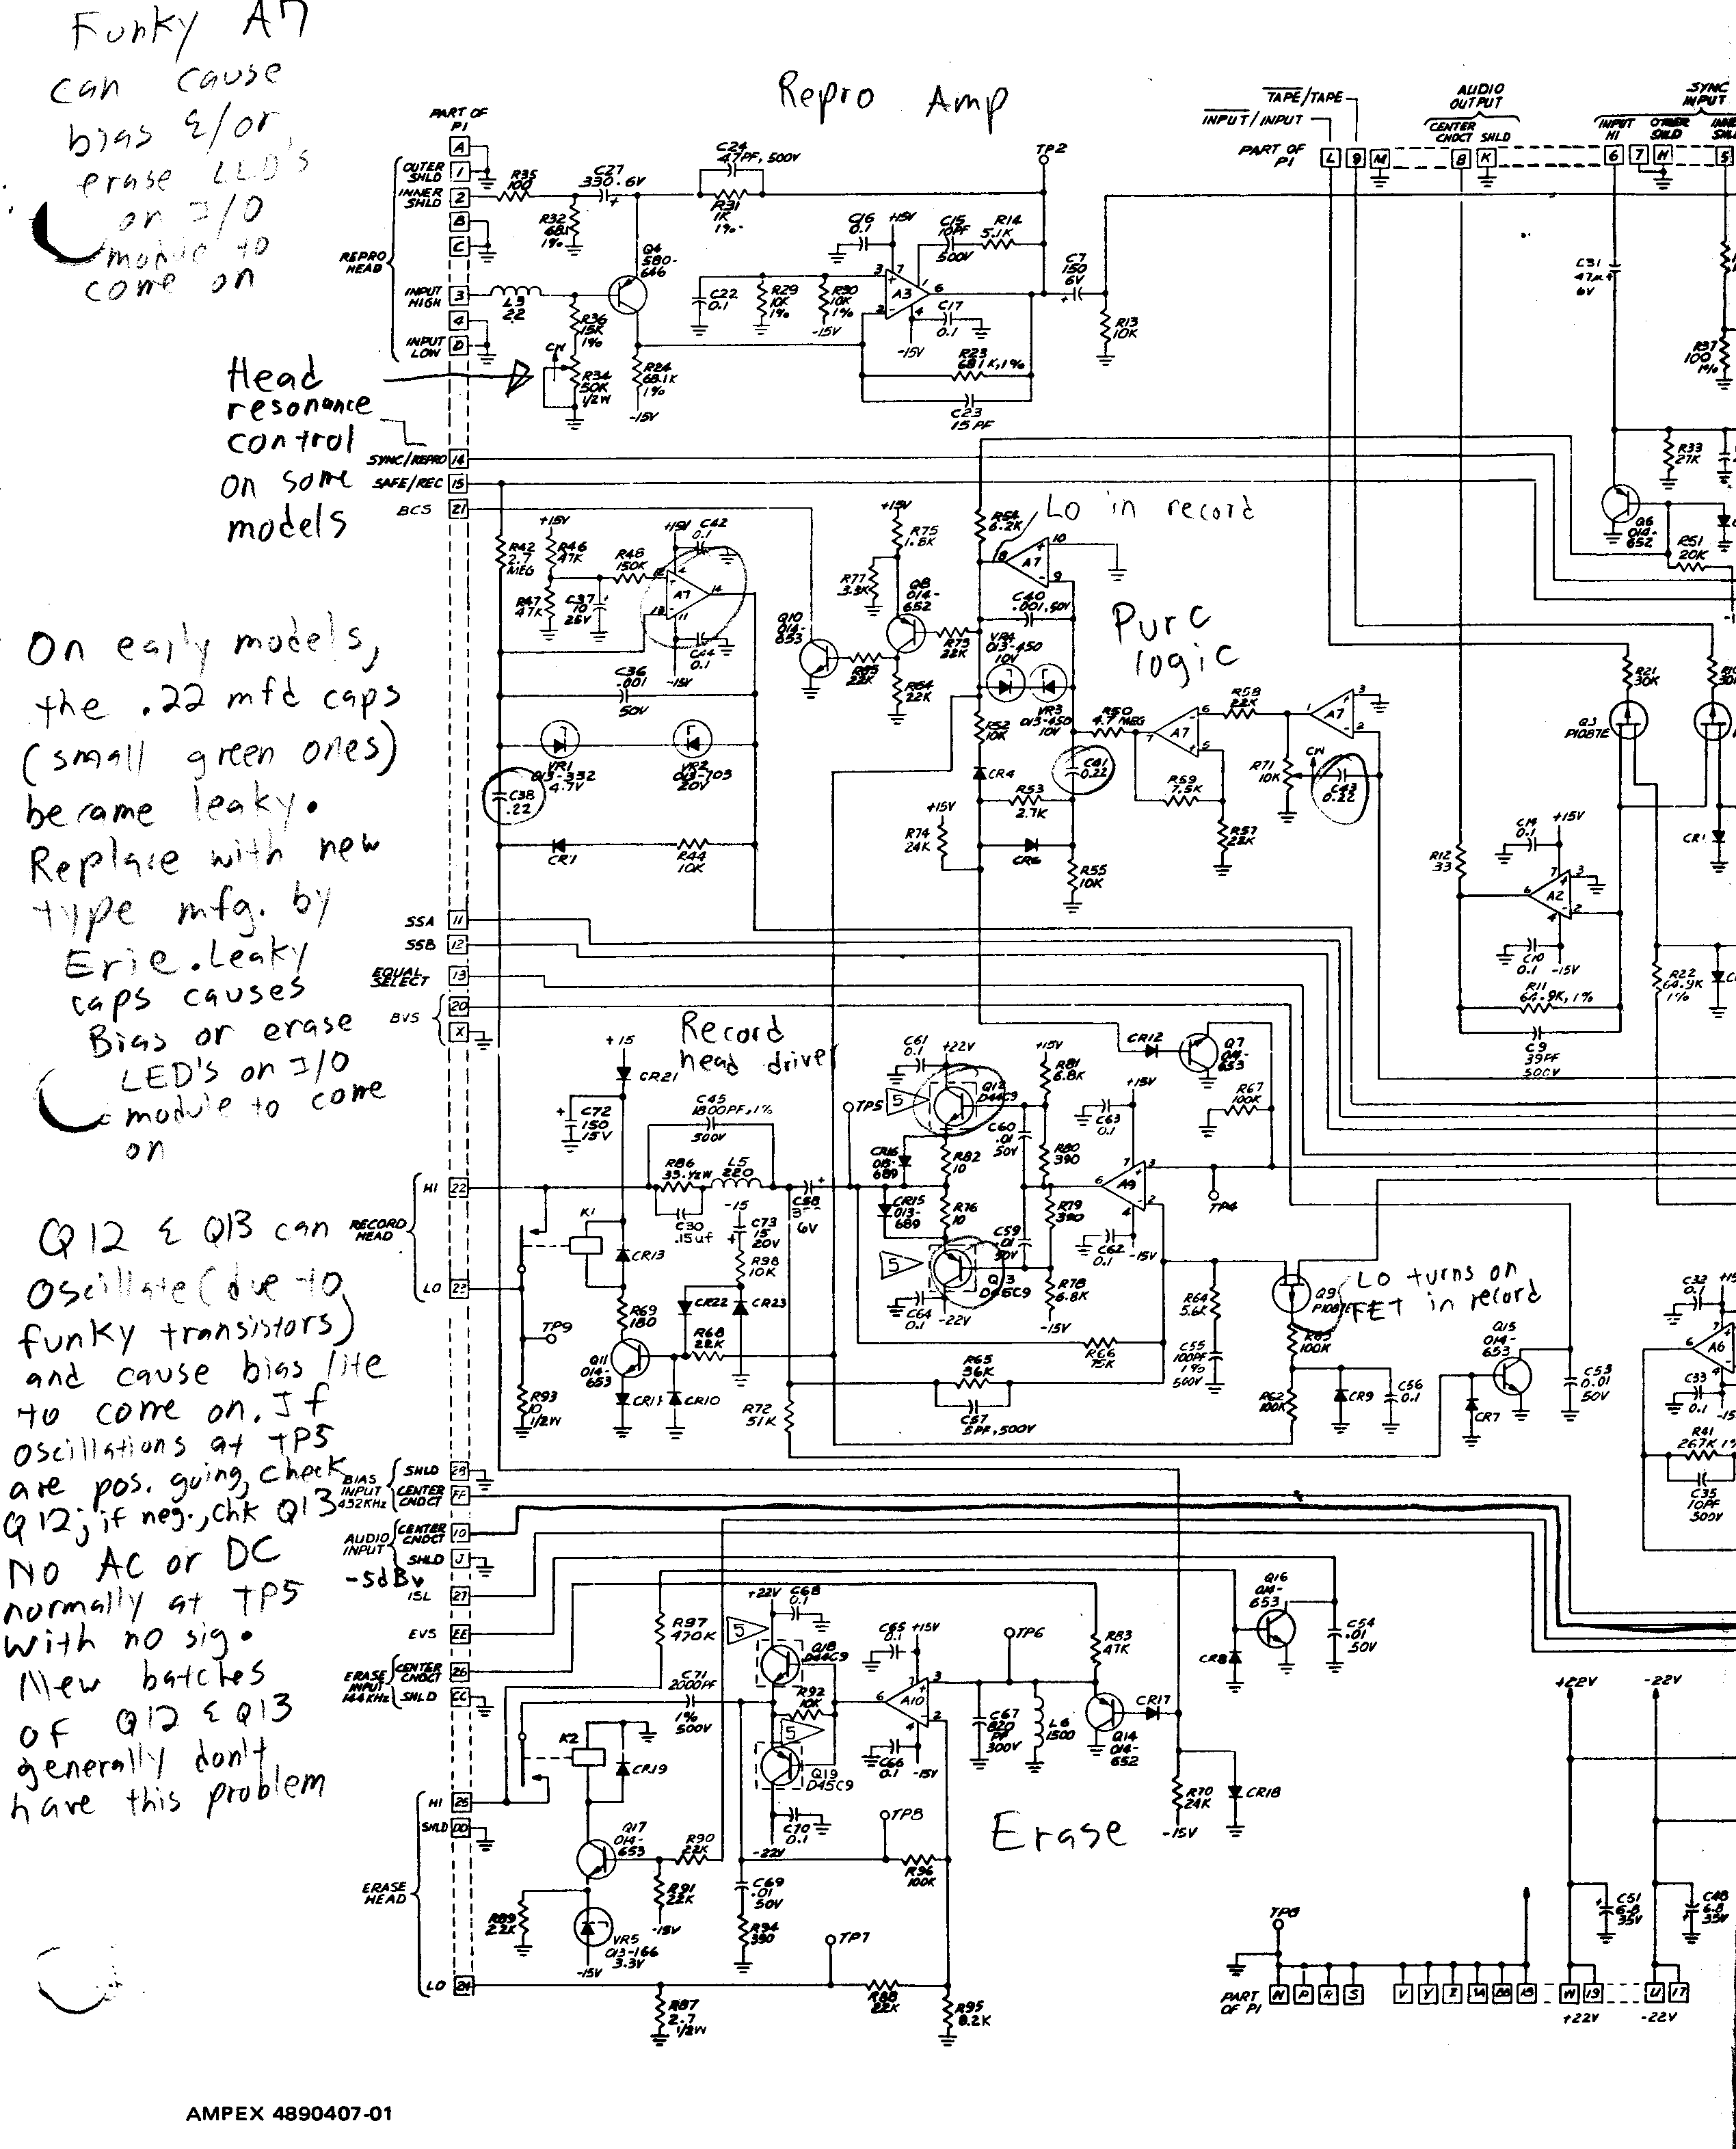 Funky A7
can cause
bias &/or
erase LED's
on I/O
module to
come on
Repro Amp
PART OF
P1
A
OUTER
SHLD
1
INNER
SHLD
2
B
C
REPRO
HEAD
INPUT
HIGH
3
4
INPUT
LOW
D
R35
100
C27
330.6V
C24
47PF, 500V
R31
1K
1%
R32
68.1
1%
Q4
580-
646
L3
22
R36
15K
1%
CW
R34
50K
1/2W
R24
68.1K
1%
-15V
C22
0.1
R29
10K
1%
R30
10K
1%
-15V
C16
0.1
+15V
C15
10PF
500V
R14
5.1K
TP2
A3
C17
0.1
-15V
R23
68.1K, 1%
C23
15PF
C7
150
6V
R13
10K
TAPE/TAPE
INPUT/INPUT
PART OF
P1
L 9 M
AUDIO
OUTPUT
CENTER
CNDCT SHLD
8 K
SYNC
INPUT
INPUT
HI
6 7 H 5
C31
47µ
6V
R37
100
1%
R33
27K
Q6
014-
652
R51
20K
Head
resonance
control
on some
models
SYNC/REPRO 14
SAFE/REC 15
BCS 21
R42
2.7
MEG
+15V
R46
47K
R47
47K
C37
10
25V
R48
150K
+15V
C42
0.1
A7
C44
0.1
-15V
C36
.001
50V
VR1
013-332
4.7V
VR2
013-703
20V
C38
.22
CR1
R44
10K
Q10
014-
653
R85
22K
+15V
R75
1.8K
R77
3.3K
Q8
014-
652
R73
22K
R84
22K
R54
6.2K
LO in record
A7
C40
.001, 50V
VR4
013-450
10V
VR3
013-450
10V
Purc
logic
R52
10K
CR4
R50
4.7 MEG
C41
0.22
R53
2.7K
CR6
R55
10K
+15V
R74
24K
A7
R58
22K
R59
7.5K
R57
22K
A7
R71
10K
CW
C43
0.22
R21
30K
Q3
P1087E
CR1
C14
0.1
+15V
R12
33
A2
C10
0.1
-15V
R11
64.9K, 1%
C9
39PF
500V
R22
64.9K
1%
On early models,
the .22 mfd caps
(small green ones)
became leaky.
Replace with new
type mfg. by
Erie. Leaky
caps causes
Bias or erase
LED's on I/O
module to come
on
SSA 11
SSB 12
EQUAL
SELECT
13
BVS
20
X
Record
head driver
+15
CR21
C72
150
15V
C45
1800PF, 1%
500V
R86
33, 1/2W
L5
220
C30
.15uf
C58
6V
HI 22
RECORD
HEAD
LO 23
K1
CR13
-15
C73
15
20V
R98
10K
CR22
CR23
R69
180
R68
22K
Q11
014-
653
CR11
CR10
TP9
R93
10
1/2W
R72
51K
R65
36K
C57
5PF, 500V
R66
75K
TP5
5
C61
0.1
+22V
Q12
D44C9
CR16
013-
689
R82
10
CR15
013-
689
R76
10
C60
.01
50V
C59
.01
50V
+15V
R81
6.8K
R80
390
R79
390
R78
6.8K
-15V
5
Q13
D45C9
C64
0.1
-22V
C63
0.1
+15V
A9
C62
0.1
-15V
CR12
Q7
014-
653
R67
100K
TP4
R64
5.6K
C55
100PF
1%
500V
Q9
P1087E
LO turns on
FET in record
R63
100K
R62
100K
CR9
C56
0.1
Q15
014-
653
CR7
C53
0.01
50V
C32
0.1
A6
C33
0.1
R41
267K
C35
10PF
500V
Q12 & Q13 can
Oscillate (due to
funky transistors)
and cause bias lite
to come on. If
oscillations at TP5
are pos. going, check
Q12; if neg., chk Q13
No AC or DC
normally at TP5
with no sig.
New batches
of Q12 & Q13
generally don't
have this problem
BIAS
INPUT
432KHz
SHLD
CENTER
CNDCT
FF
AUDIO
INPUT
CENTER
CNDCT
10
SHLD J
-5dBv
ISL 27
EVS EE
ERASE
INPUT
144KHz
CENTER
CNDCT
26
SHLD CC
R97
470K
C71
2000PF
1%
500V
5
+22V
C68
0.1
Q18
D44C9
R92
10K
5
Q19
D45C9
C70
0.1
-22V
C65
0.1
+15V
A10
C66
0.1
-15V
TP6
C67
820
PF
300V
L6
1500
R83
47K
Q14
014-
652
CR17
CR8
Q16
014-
653
C54
.01
50V
R70
24K
-15V
CR18
Erase
K2
CR19
HI 25
SHLD DD
ERASE
HEAD
LO 24
Q17
014-
653
R90
22K
R91
22K
-15V
R89
2.2K
VR5
013-166
3.3V
-15V
C69
.01
50V
R94
390
TP8
R96
100K
TP7
R88
22K
R87
2.7
1/2W
R95
8.2K
+22V
-22V
C51
6.8
35V
C48
6.8
35V
PART
OF P1
N P R S V Y Z AA BB 18 W 19 U 17
+22V
-22V
AMPEX 4890407-01